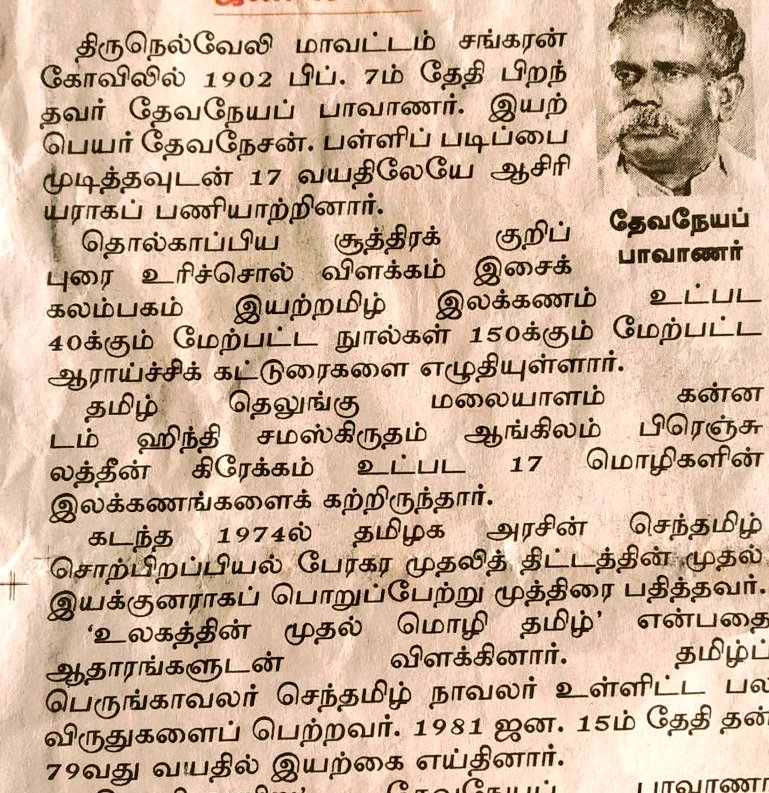 திருநெல்வேலி மாவட்டம் சங்கரன்
கோவிலில் 1902 பிப். 7ம் தேதி பிறந்
தவர் தேவநேயப் பாவாணர். இயற்
பெயர் தேவநேசன். பள்ளிப் படிப்பை
முடித்தவுடன் 17 வயதிலேயே ஆசிரி
யராகப் பணியாற்றினார்.
தேவநேயப்
பாவாணர்
தொல்காப்பிய சூத்திரக் குறிப்
புரை உரிச்சொல் விளக்கம் இசைக்
கலம்பகம் இயற்றமிழ் இலக்கணம் உட்பட
40க்கும் மேற்பட்ட நுால்கள் 150க்கும் மேற்பட்ட
ஆராய்ச்சிக் கட்டுரைகளை எழுதியுள்ளார்.
தமிழ் தெலுங்கு மலையாளம் கன்ன
டம் ஹிந்தி சமஸ்கிருதம் ஆங்கிலம் பிரெஞ்சு
லத்தீன் கிரேக்கம் உட்பட 17 மொழிகளின்
இலக்கணங்களைக் கற்றிருந்தார்.
கடந்த 1974ல் தமிழக அரசின் செந்தமிழ்
சொற்பிறப்பியல் பேரகர முதலித் திட்டத்தின் முதல்
இயக்குனராகப் பொறுப்பேற்று முத்திரை பதித்தவர்.
'உலகத்தின் முதல் மொழி தமிழ்' என்பதை
ஆதாரங்களுடன் விளக்கினார். தமிழ்ப்
பெருங்காவலர் செந்தமிழ் நாவலர் உள்ளிட்ட பல
விருதுகளைப் பெற்றவர். 1981 ஜன. 15ம் தேதி தன்
79வது வயதில் இயற்கை எய்தினார்.
தேவநேயப் பாவாணர்